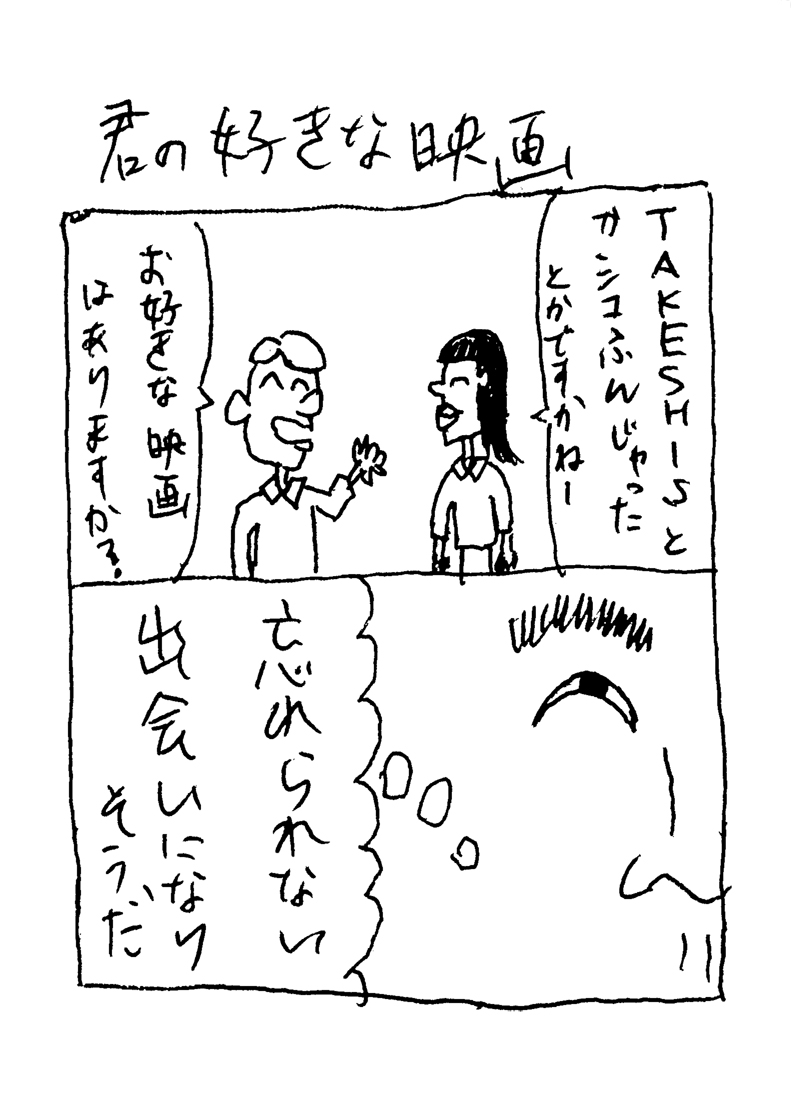 君の好きな映画
TAKESHISと
カシコふんじゃった
とかですかねー
お好きな映画
はありますか？
忘れられない
出会いになり
そうだ